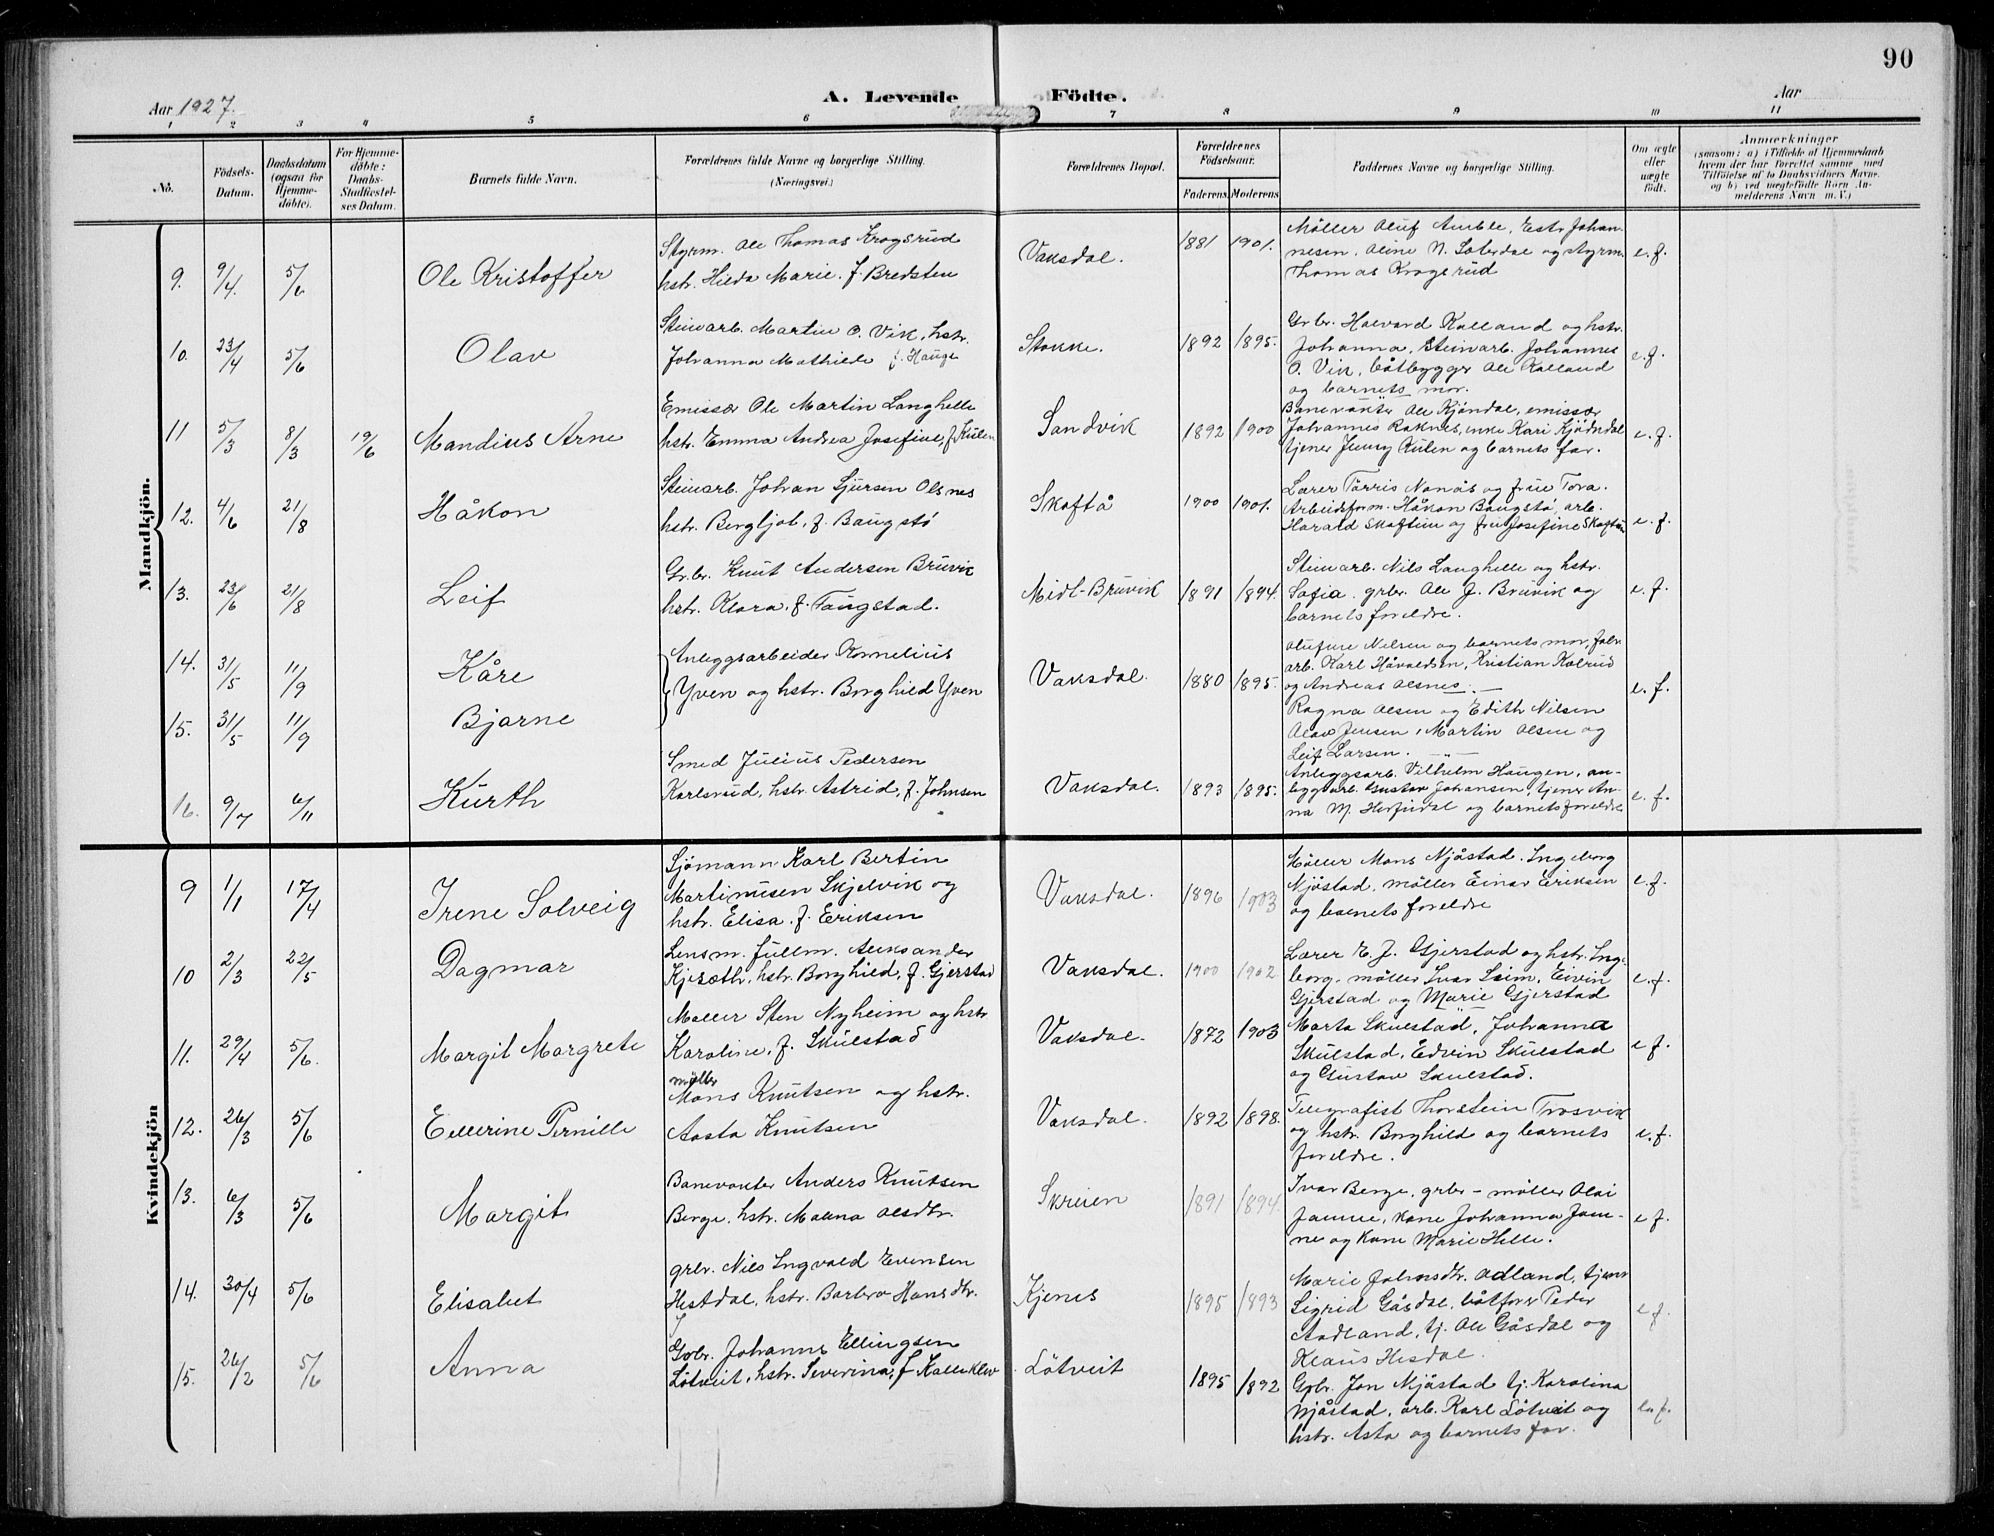 90
Aar 1927. A. Levende Födte. Aar
1 2 3 4 5 6 7 8 9 10 11
No. Födsels-Datum. Daabsdatum (ogsaa for Hjemmedöbte). For Hjemmedöbte: Daabs-Stadfæstelses Datum. Barnets fulde Navn. Forældrenes fulde Navne og borgerlige Stilling. (Næringsvei.) Forældrenes Bopæl. Forældrenes Födselsaar. Faderens Moderens Faddernes Navne og borgerlige Stilling. Om ægte eller uægte födt. Anmærkninger (saasom: a) i Tilfælde af Hjemmedaab hvem der har forrettet samme med Tilföielse af to Daabsvidners Navne. og b) ved uægtefödte Börn Anmelderens Navn m. V.)
Mandkjön.
9. 9/4. 5/6 Ole Kristoffer
Styrm. Ole Thomas Krogsrud
hstr. Hilda Marie. f. Bredsten
Vaksdal. 1881 1901.
Möller Oluf Amble, Estr. Johan-
nesen, Aline N. Solerdal og styrm.
Thomas Krogsrud
e.f.
10. 23/4 5/6 Olav
Steinarb. Martin O. Vik, hstr.
Johanna Mathilde f. Hauge
Stokke. 1892 1895.
Grbr. Halvard Kalland og hstr.
Johanna, Steinarb. Johannes
O. Vik, båtbygger Ole Kalland
og barnets mor.
e.f.
11 5/3 8/3 19/6 Mandius Arne
Emissær Ole Martin Langhelle
hstr. Emma Andrea Josefine, f. Kulen
Sandvik 1892 1900
Banevokter Ole Kjöndal, emissær
Johannes Raknes, enke Kari Kjödndal
tjener Jenny Kulen og barnets far.
e.f.
12. 4/6 21/8 Håkon
Steinarb. Johan Sjursen Olsnes
hstr. Bergljot, f. Baugstö
Skaftå 1900 1901.
Lærer Torris Nonås og frue Tora.
Arbeidsform. Håkon Bångstö, arb.
Harald Skaftun og fru Josefine Skaftun
e.f.
13. 23/6 21/8 Leif
Gr.br. Knut Andersen Bruvik
hstr. Klara, f. Taugstad.
Midt-Bruvik 1891 1894.
Steinarb. Nils Langhelle og hstr.
Sofia. grbr. Ole J. Bruvik og
barnets foreldre.
e.f.
14. 31/5 11/9 Kåre
Anleggsarbeider Kornelius
Yven og hstr. Borghild Yven
Vaksdal. 1880 1895.
Olufine Nilsen og barnets mor, fabr.
arb. Karl Håvaldsen, Kristian Kolrud
og Andreas Olsnes. —
e.f.
15. 31/5 11/9 Bjarne
Ragna Olsen og Edith Nilsen
Olav Jensen, Martin Olsen og
Leif Larsen.
16. 9/7 6/11 Kurth
Smed Julius Pedersen
Karlsrud, hstr. Astrid, f. Johnsen
Vaksdal. 1893 1895.
Anleggsarb. Vilhelm Haugen, an-
leggsarb. Gustav Johansen, tjener An-
na M. Herfindal og barnets foreldre
e.f.
Kvindekjön
9 1/1 17/4 Irene Solveig
Sjömann Karl Bertin
Martinusen Skjelvik og
hstr. Elisa. f. Eriksen
Vaksdal. 1896 1903
Möller Mons Njåstad. Ingeborg
Njåstad, möller Einar Eriksen
og barnets foreldre
e.f.
10 2/3 22/5 Dagmar
Lensm. fullm. Aleksander
Kjeseth, hstr. Borghild, f. Gjerstad
Vaksdal. 1900 1902
Lærer E. J. Gjerstad og hstr. Inge-
borg. möller Ivar Seim, Eivin
Gjerstad og Marie Gjerstad
e.f.
11. 29/4 5/6. Margit Margrete
Möller Sten Nyheim og hstr
Karoline, f. Skulestad
Vaksdal. 1872 1903
Marta Skulestad, Johanna
Skulestad, Edvin Skulestad
og Gustav Skulestad.
e.f.
12. 26/3 5/6 Ellerine Pernille
möller
Mons Knutsen og hstr.
Aasta Knutsen
Vaksdal. 1892 1898.
Telegrafist Thorstein Trosvik
og hstr. Borghild og barnets
foreldre.
e.f.
13. 6/3 5/6 Margit
Banevokter Anders Knutsen
Berge. hstr. Malena Olsdtr.
Skreien 1891 1894.
Ivar Berge, grbr – möller Olai
Jamne, kone Johanna Jam-
ne og kone Marie Helle.
e.f.
14. 30/4 5/6 Elisabet
grbr. Nils Ingvald Evensen
Hesdal, hstr. Barbro Hansdtr.
Kjenes 1895 1893
Marie Johnsdtr. Adland, tjener
Sigrid Gåsdal, båtförer Peder
Aadland, tj. Ole Gåsdal og
Klaus Hesdal.
e.f.
15. 26/2 5/6 Anna
Gbr. Johannes Ellingsen
Lötveit, hstr. Severina, f. Kallekleiv
Lötveit 1895 1892
Gbr. Jon Njåstad tj. Karolina
Njåstad, arb. Karl Lötveit og
hstr. Asta og barnets far.
e.f.